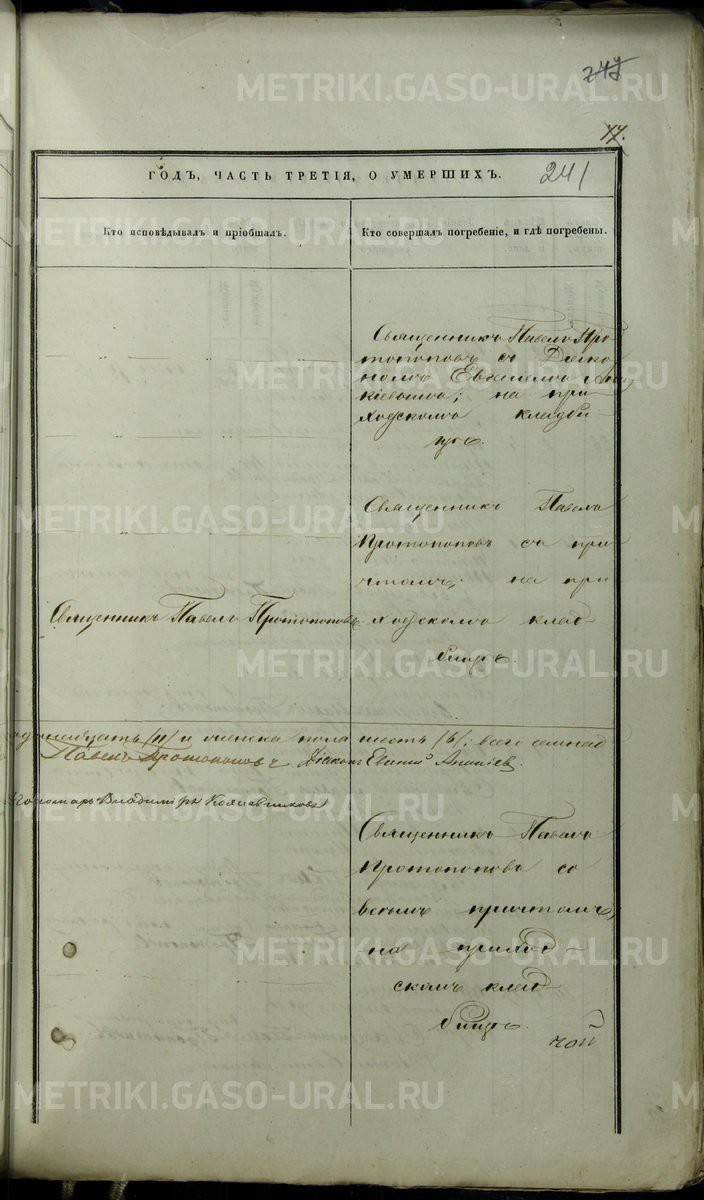 247
METRIKI.GASO-URAL.RU
17.
ГОДЪ, ЧАСТЬ ТРЕТІЯ, О УМЕРШИХЪ.
241
Кто исповѣдывалъ и пріобщалъ.
Кто совершалъ погребеніе, и гдѣ погребены.
Священникъ Павелъ Про
топоповъ съ Діяко
номъ Евгеніемъ
на при-
ходскомъ кладби
щѣ.
METRIKI.GASO-URAL.RU
Священникъ Павелъ
Протопоповъ съ при
чтомъ, на при
Священникъ Павелъ Протопоповъ.
ходскомъ клад
бищѣ.
METRIKI.GASO-URAL.RU
(11) и женска пола шесть (6); всего семнад
Павелъ Протопоповъ Діаконъ Евгеній Ананіев.
Пономарь Владиміръ
Священникъ Павелъ
Протопоповъ со
всѣмъ причтомъ,
на приход-
скомъ клад
бищѣ.
METRIKI.GASO-URAL.RU